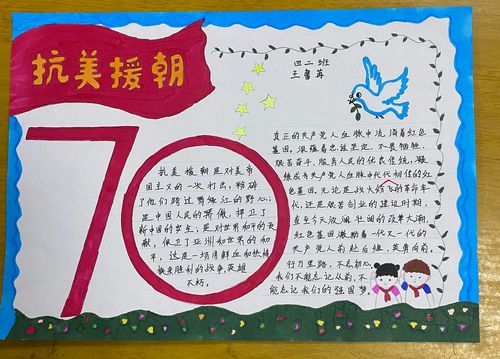 抗美援朝
四二班
70
抗美援朝是对美帝
国主义的一次打击，粉碎
了他们跨过鸭绿江的野心，
是中国人民的骄傲，捍卫了
新中国的安全，是对世界和平的贡
献，保卫了亚洲和世界的和
平，这是一场用鲜血和热情
换来胜利的战争，英雄
不朽。
真正的共产党人血脉中流淌着红色
基因，深蕴着忠诚坚定、不畏牺牲、
艰苦奋斗、服务人民的优良传统，凝
炼成为共产党人血脉中代代相传的红
色基因。无论是战火纷飞的革命年
代，还是艰苦创业的建设时期，
直至今天波澜壮阔的改革大潮，
红色基因激励着一代又一代的
共产党人前赴后继，英勇向前。
行万里路，不忘初心，
我们不能忘记从前，不
能忘记我们的强国梦。